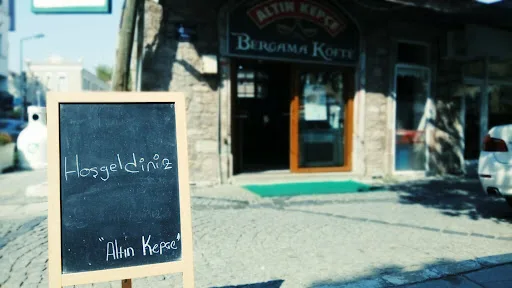 ALTIN KEPÇE
BERGAMA KÖFTE
Hoşgeldiniz
"Altın Kepçe"